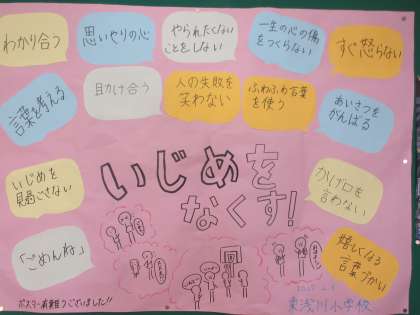 わかり合う
思いやりの心
やられたくない
ことをしない
一生の心の傷
をつくらない
すぐ怒らない
言葉を考える
助け合う
人の失敗を
笑わない
ふわふわ言葉
を使う
あいさつを
がんばる
いじめを
見過ごさない
いじめを
なくす!
かげ口を
言わない
「ごめんね」
嬉しくなる
言葉づかい
東浅川小学校